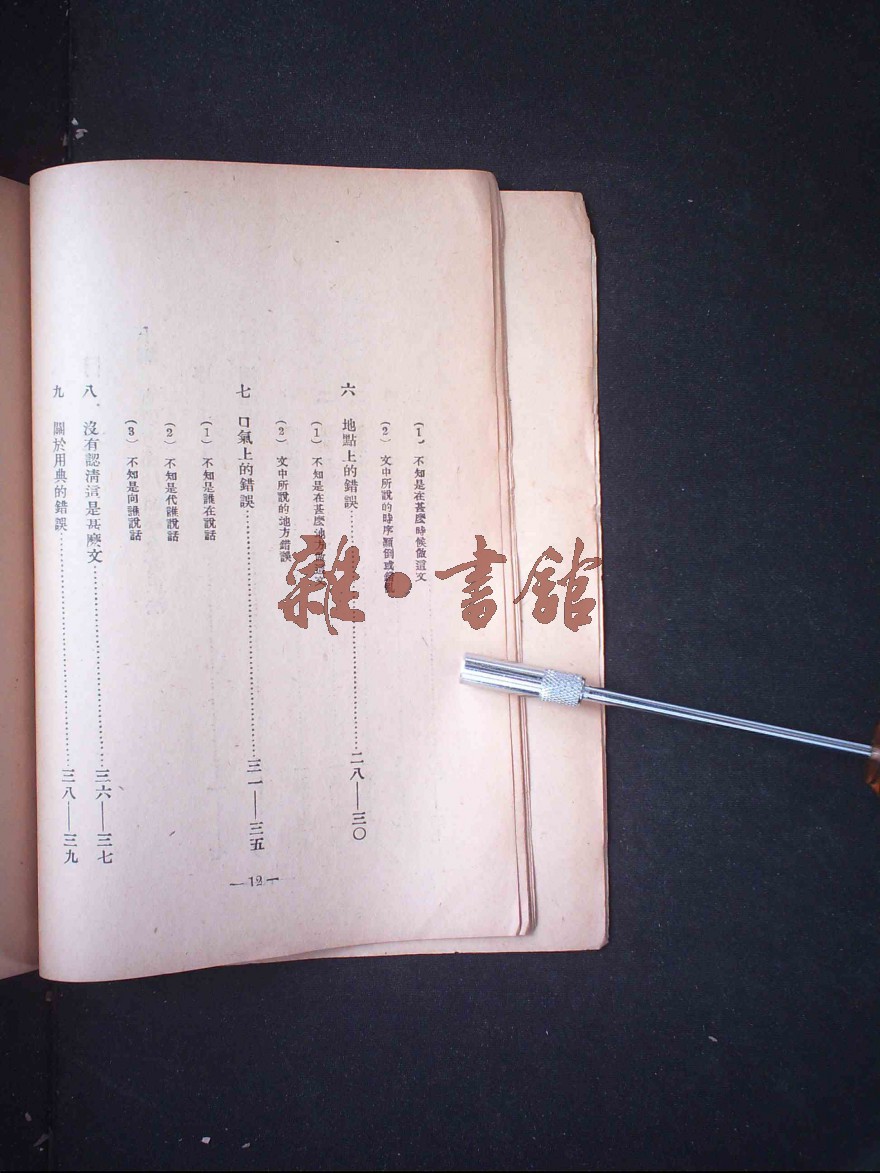 (1) 不知是在甚麼時候做這文
(2) 文中所說的時序顚倒或
六 地點上的錯誤……二八——三〇
(1) 不知是在甚麼地方
(2) 文中所說的地方錯誤
七 口氣上的錯誤……三一——三五
(1) 不知是誰在說話
(2) 不知是代誰說話
(3) 不知是向誰說話
八、沒有認淸這是甚麼文……三六——三七
九 關於用典的錯誤……三八——三九
—12—
雜·書館